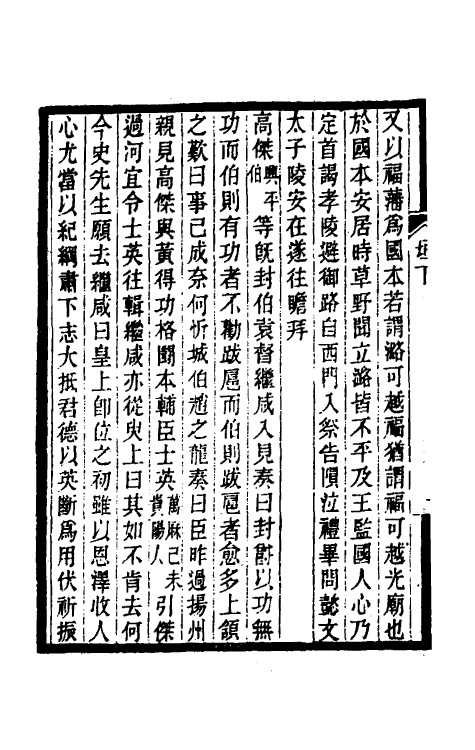 又以福藩爲國本若謂潞可越福猶謂福可越光廟也
於國本安居時草野聞立潞皆不平及王監國人心乃
定首謁孝陵避御路自西門入祭告隕泣禮畢問懿文
太子陵安在遂往瞻拜
高傑興平伯等旣封伯袁督繼咸入見奏曰封爵以功無
功而伯則有功者不勸跋扈而伯則跋扈者愈多上領
之歎曰事已成奈何忻城伯趙之龍奏曰臣昨過揚州
親見高傑與黃得功格鬬本輔臣士英萬厤己未貴陽人引傑
過河宜令士英往輯繼咸亦從臾上曰其如不肯去何
今史先生願去繼咸曰皇上卽位之初雖以恩澤收人
心尤當以紀綱肅下志大抵君德以英斷爲用伏祈振
下